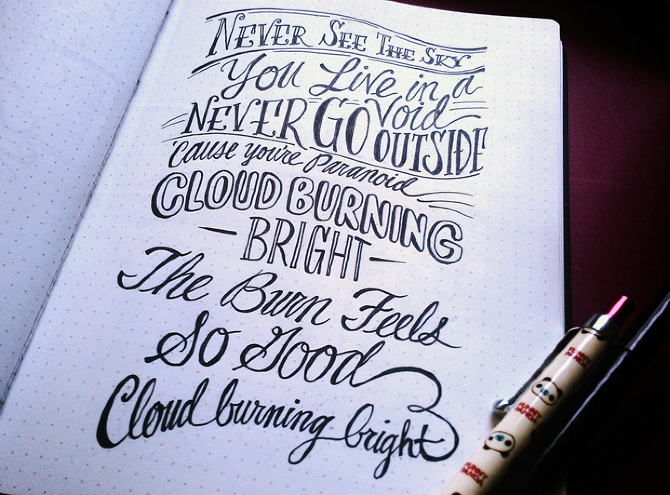 NEVER SEE THE SKY
You Live in a
Void
NEVER GO OUTSIDE
'cause you're Paranoid
CLOUD BURNING
BRIGHT
The Burn Feels
So Good
Cloud burning bright